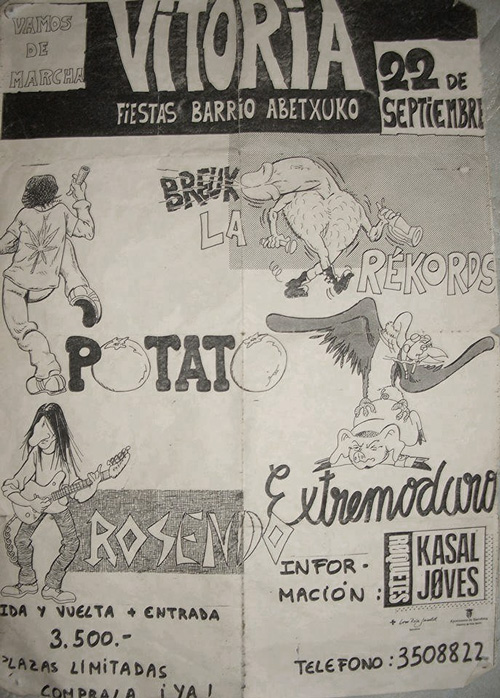 VAMOS
DE
MARCHA
VITORIA
FIESTAS BARRIO ABETXUKO
22 DE
SEPTIEMBRE
BREUK
LA
RÉKORDS
POTATO
Extremoduro
ROSENDO
INFOR-
MACIÓN :
ROQUETES
KASAL
JØVES
IDA Y VUELTA + ENTRADA
3.500.-
PLAZAS LIMITADAS
COMPRALA ¡YA!
TELEFONO : 3508822